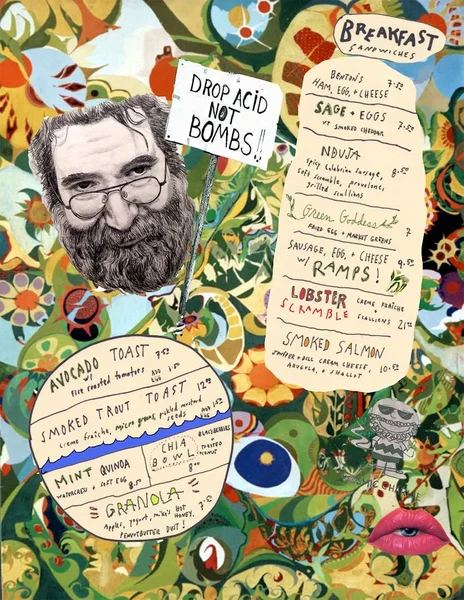 BREAKFAST
SANDWICHES
DROP ACID
NOT
BOMBS!!
BENTON'S
HAM, EGG, + CHEESE 7.50
SAGE + EGGS
w/ SMOKED CHEDDAR 7.50
NDUJA
spicy calabrian sausage, 8.50
soft scramble, provolone,
grilled scallions
Green Goddess
FRIED EGG + MARKET GREENS 7
SAUSAGE, EGG, + CHEESE 9.50
w/ RAMPS!
LOBSTER CREME FRAÎCHE
SCRAMBLE + SCALLIONS 21.00
SMOKED SALMON
JUNIPER + DILL CREAM CHEESE, 10.50
ARUGULA, + SHALLOT
AVOCADO TOAST 9.50
w/
fire roasted tomatoes ADD EGG 1.50
SMOKED TROUT TOAST 12.00
creme fraîche, micro greens, pickled mustard
seeds ADD EGG 1.50
MINT QUINOA
WATERCRESS + SOFT EGG 8.50
CHIA
BOWL
8.00
BLACKBERRIES
+
TOASTED
GRANOLA
Apples, yogurt, mike's hot 7.50
HONEY,
PEANUTBUTTER DUST!